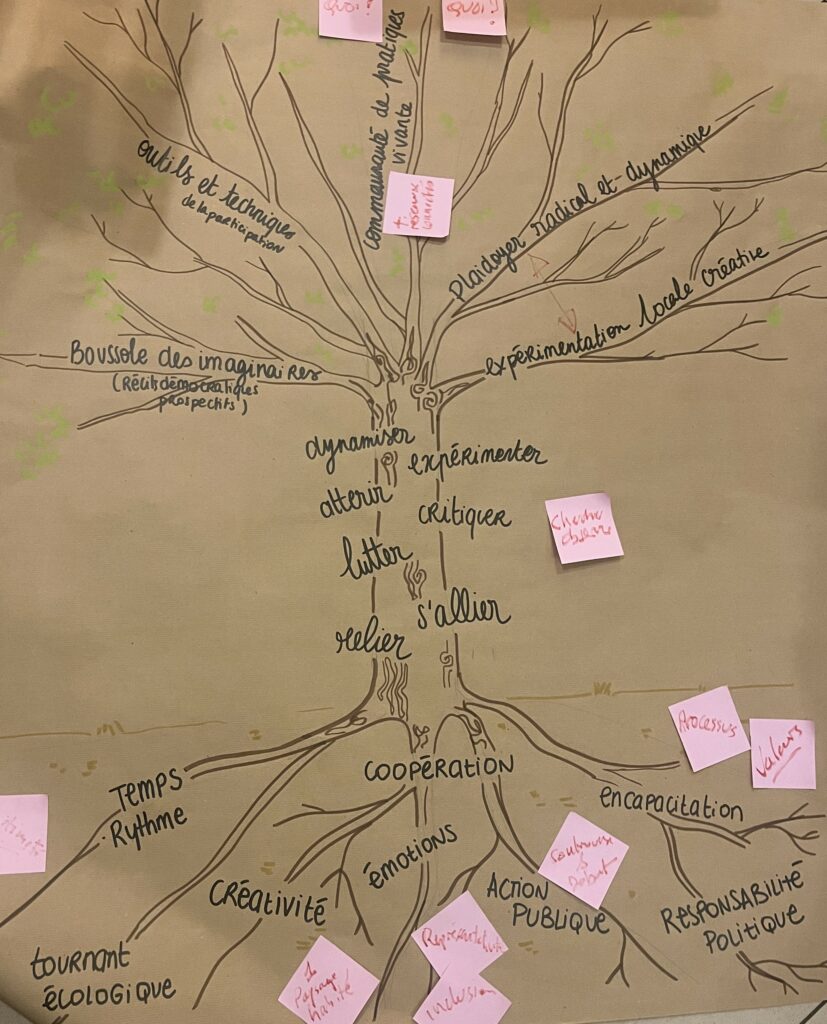 QUOI ?
QUOI ?
communauté de pratiques
vivante
outils et techniques
de la participation
Plaidoyer radical et dynamique
expérimentation locale créative
Boussole des imaginaires
(Récits démocratiques
prospectifs)
dynamiser
expérimenter
atterir
critiquer
lutter
s'allier
relier
Processus
Valeurs
COOPÉRATION
TEMPS
Rythme
encapacitation
émotions
CRÉATIVITÉ
ACTION
PUBLIQUE
Débat
RESPONSABILITÉ
POLITIQUE
tournant
écologique
Paysage
habité
inclusion